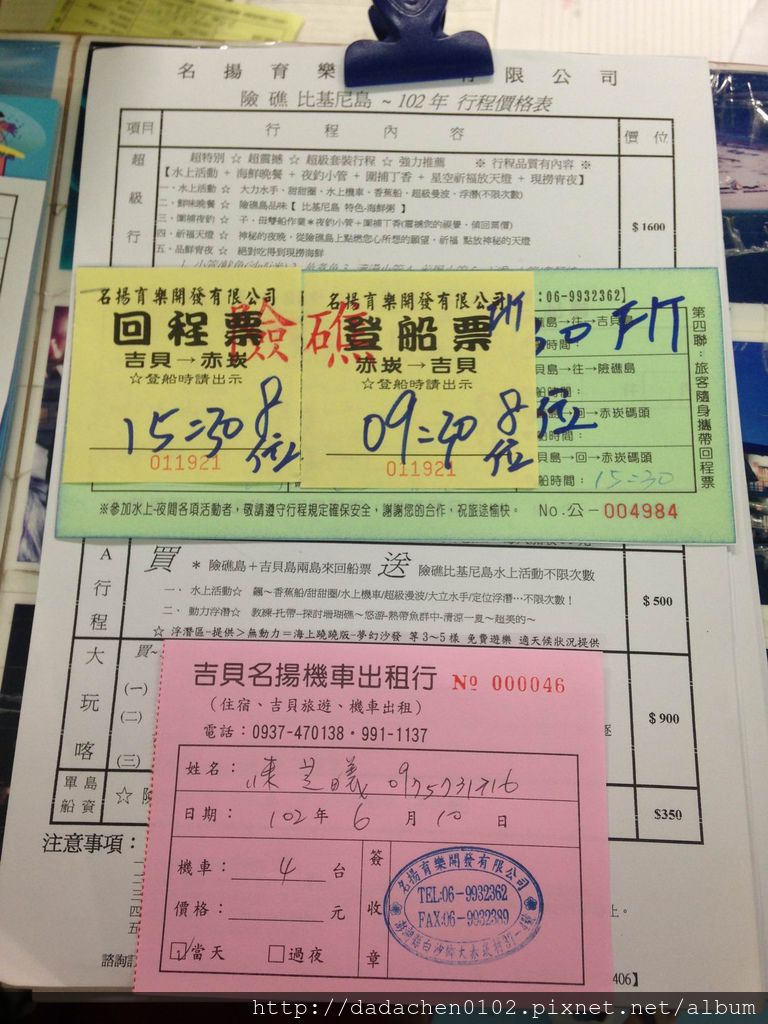 名 揚 育 樂 有 限 公 司
險 礁 比基尼島 ~ 102年 行程價格表
項目 行 程 內 容 價 位
超 級 行
超特別 ☆ 超震撼 ☆ 超級套裝行程 ☆ 強力推薦 ※ 行程品質有內容 ※
【水上活動 + 海鮮晚餐 + 夜釣小管 + 圍捕丁香 + 星空祈福放天燈 + 現撈青夜】
一、水上活動 ☆ 大力水手、甜甜圈、水上機車、香蕉船、超級曼波、浮潛(不限次數)
二、鮮味晚餐 ☆ 險礁島品味【 比基尼島 特色-海鮮粥 】
三、圍捕夜釣 ☆ 子、母雙船作業＊夜釣小管＋圍捕丁香(震撼您的視覺、值回票價)
四、祈福天燈 ☆ 神秘的夜晚，從險礁島上點燃您心所想的願望，祈福 點放神秘的天燈
五、品鮮青夜 ☆ 絕對吃得到現撈海鮮
$ 1600
名揚育樂開發有限公司
回程票
吉貝→赤崁
☆登船時請出示
15:30 8位
011921
險礁
名揚育樂開發有限公司
登船票
赤崁→吉貝
☆登船時請出示
09:40 8位
011921
:06-9932362】
礁島→往→吉貝
時間：
貝島→往→險礁島
船時間：
→回→赤崁碼頭
時間：
貝島→回→赤崁碼頭
船時間：15:30
第四聯：旅客隨身攜帶回程票
※參加水上-夜間各項活動者，敬請遵守行程規定確保安全，謝謝您的合作，祝旅途愉快。 No.公－004984
A 行 程
買 * 險礁島＋吉貝島兩島來回船票 送 險礁比基尼島水上活動不限次數
一、 水上活動☆ 飆~香蕉船/甜甜圈/水上機車/超級漫波/大立水手/定位浮潛…不限次數！
二、 動力浮潛☆ 教練-托帶--探討珊瑚礁~悠游-熱帶魚群中-清涼一夏~超美的~
☆ 浮潛區-提供＞無動力＝海上蹺蹺版-夢幻沙發 等3~5樣 免費遊樂 適天候狀況提供
$ 500
大 玩 喀
買~
(一)
(二)
(三)
$ 900
單島船資 ☆ 險
$350
注意事項：
吉貝名揚機車出租行 № 000046
（住宿、吉貝旅遊、機車出租）
電話：0937-470138・991-1137
姓名：陳芝曦 0975731716
日期：102 年 6 月 10 日
機車：4 台
價格： 元
☑當天 □過夜
簽收章
名揚育樂開發有限公司
TEL:06-9932362
FAX:06-9932389
諮詢訂
406】
http://dadachen0102.pixnet.net/album